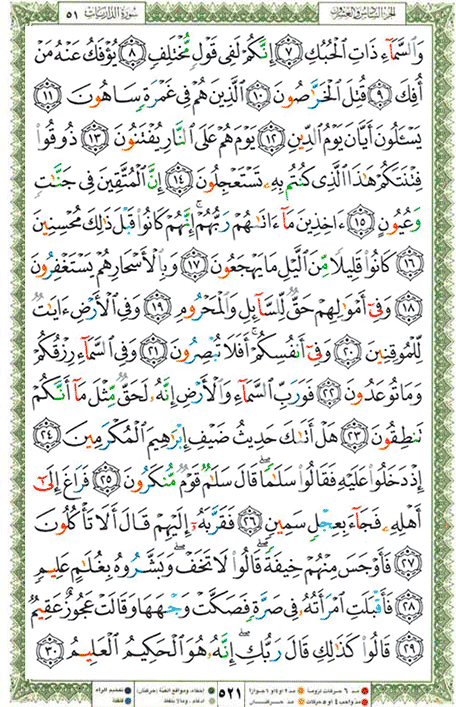 سورة الذاريات ٥١
الجزء السادس والعشرون
وَٱلسَّمَآءِ ذَاتِ ٱلۡحُبُكِ ٧ إِنَّكُمۡ لَفِي قَوۡلٖ مُّخۡتَلِفٖ ٨ يُؤۡفَكُ عَنۡهُ مَنۡ
أُفِكَ ٩ قُتِلَ ٱلۡخَرَّٰصُونَ ١٠ ٱلَّذِينَ هُمۡ فِي غَمۡرَةٖ سَاهُونَ ١١
يَسۡـَٔلُونَ أَيَّانَ يَوۡمُ ٱلدِّينِ ١٢ يَوۡمَ هُمۡ عَلَى ٱلنَّارِ يُفۡتَنُونَ ١٣ ذُوقُواْ
فِتۡنَتَكُمۡ هَٰذَا ٱلَّذِي كُنتُم بِهِۦ تَسۡتَعۡجِلُونَ ١٤ إِنَّ ٱلۡمُتَّقِينَ فِي جَنَّٰتٖ
وَعُيُونٍ ١٥ ءَاخِذِينَ مَآ ءَاتَىٰهُمۡ رَبُّهُمۡۚ إِنَّهُمۡ كَانُواْ قَبۡلَ ذَٰلِكَ مُحۡسِنِينَ
١٦ كَانُواْ قَلِيلٗا مِّنَ ٱلَّيۡلِ مَا يَهۡجَعُونَ ١٧ وَبِٱلۡأَسۡحَارِ هُمۡ يَسۡتَغۡفِرُونَ
١٨ وَفِيٓ أَمۡوَٰلِهِمۡ حَقّٞ لِّلسَّآئِلِ وَٱلۡمَحۡرُومِ ١٩ وَفِي ٱلۡأَرۡضِ ءَايَٰتٞ
لِّلۡمُوقِنِينَ ٢٠ وَفِيٓ أَنفُسِكُمۡۚ أَفَلَا تُبۡصِرُونَ ٢١ وَفِي ٱلسَّمَآءِ رِزۡقُكُمۡ
وَمَا تُوعَدُونَ ٢٢ فَوَرَبِّ ٱلسَّمَآءِ وَٱلۡأَرۡضِ إِنَّهُۥ لَحَقّٞ مِّثۡلَ مَآ أَنَّكُمۡ
تَنطِقُونَ ٢٣ هَلۡ أَتَىٰكَ حَدِيثُ ضَيۡفِ إِبۡرَٰهِيمَ ٱلۡمُكۡرَمِينَ ٢٤
إِذۡ دَخَلُواْ عَلَيۡهِ فَقَالُواْ سَلَٰمٗاۖ قَالَ سَلَٰمٞ قَوۡمٞ مُّنكَرُونَ ٢٥ فَرَاغَ إِلَىٰٓ
أَهۡلِهِۦ فَجَآءَ بِعِجۡلٖ سَمِينٖ ٢٦ فَقَرَّبَهُۥٓ إِلَيۡهِمۡ قَالَ أَلَا تَأۡكُلُونَ
٢٧ فَأَوۡجَسَ مِنۡهُمۡ خِيفَةٗۖ قَالُواْ لَا تَخَفۡۖ وَبَشَّرُوهُ بِغُلَٰمٍ عَلِيمٖ
٢٨ فَأَقۡبَلَتِ ٱمۡرَأَتُهُۥ فِي صَرَّةٖ فَصَكَّتۡ وَجۡهَهَا وَقَالَتۡ عَجُوزٌ عَقِيمٞ
٢٩ قَالُواْ كَذَٰلِكِ قَالَ رَبُّكِۖ إِنَّهُۥ هُوَ ٱلۡحَكِيمُ ٱلۡعَلِيمُ ٣٠
٥٢١